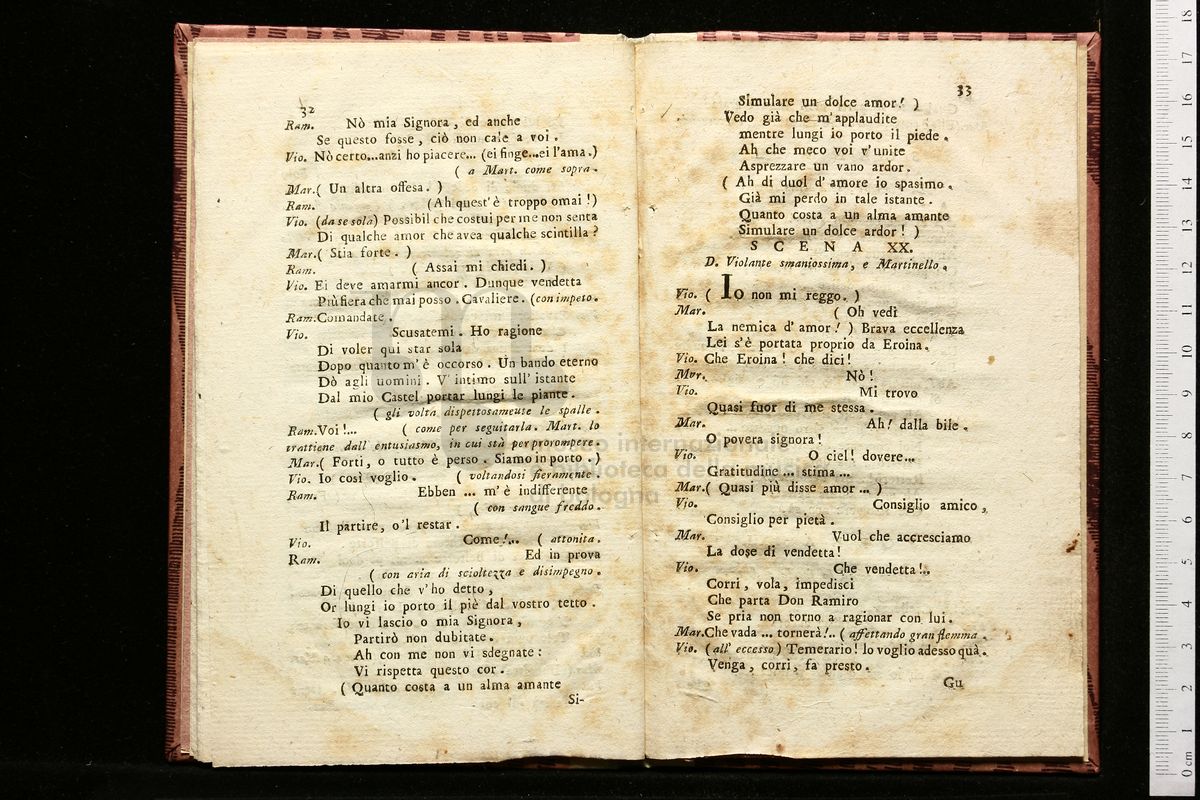 32
Ram. Nò mia Signora, ed anche
Se questo fosse, ciò non cale a voi.
Vio. Nò certo...anzi ho piacere... (ei finge...ei l'ama.)
( a Mart. come sopra.
Mar.( Un altra offesa. )
Ram. (Ah quest'è troppo omai!)
Vio. (da se sola) Possibil che costui per me non senta
Di qualche amor che avea qualche scintilla?
Mar.( Stia forte. )
Ram. ( Assai mi chiedi. )
Vio. Ei deve amarmi ancor. Dunque vendetta
Più fiera che mai posso. Cavaliere. (con impeto.
Ram.Comandate.
Vio. Scusatemi. Ho ragione
Di voler qui star sola
Dopo quanto m'è occorso. Un bando eterno
Dò agli uomini. V' intimo sull' istante
Dal mio Castel portar lungi le piante.
( gli volta dispettosamente le spalle.
Ram.Voi!... ( come per seguitarla. Mart. lo
trattiene dall' entusiasmo, in cui stà per prorompere.
Mar.( Forti, o tutto è perso. Siamo in porto. )
Vio. Io così voglio. ( voltandosi fieramente.
Ram. Ebben ... m'è indifferente
( con sangue freddo.
Il partire, o'l restar.
Vio. Come!... ( attonita.
Ram. Ed in prova
( con aria di scioltezza e disimpegno.
Di quello che v'ho detto,
Or lungi io porto il piè dal vostro tetto.
Io vi lascio o mia Signora,
Partirò non dubitate.
Ah con me non vi sdegnate:
Vi rispetta questo cor.
( Quanto costa a un alma amante
Si-
33
Simulare un dolce amor! )
Vedo già che m'applaudite
mentre lungi io porto il piede.
Ah che meco voi v'unite
Asprezzare un vano ardor.
( Ah di duol d' amore io spasimo.
Già mi perdo in tale istante.
Quanto costa a un alma amante
Simulare un dolce ardor! )
SCENA XX.
D. Violante smaniosissima, e Martinello.
Vio. ( Io non mi reggo. )
Mar. ( Oh vedi
La nemica d' amor! ) Brava eccellenza
Lei s'è portata proprio da Eroina.
Vio. Che Eroina! che dici!
Mar. Nò!
Vio. Mi trovo
Quasi fuor di me stessa.
Mar. Ah! dalla bile.
O povera signora!
Vio. O ciel! dovere...
Gratitudine ... stima ...
Mar.( Quasi più disse amor ... )
Vio. Consiglio amico,
Consiglio per pietà.
Mar. Vuol che accresciamo
La dose di vendetta!
Vio. Che vendetta!..
Corri, vola, impedisci
Che parta Don Ramiro
Se pria non torno a ragionar con lui.
Mar.Che vada ... tornerà!.. ( affettando gran flemma.
Vio. (all' eccesso) Temerario! lo voglio adesso quà.
Venga, corri, fa presto.
Gu